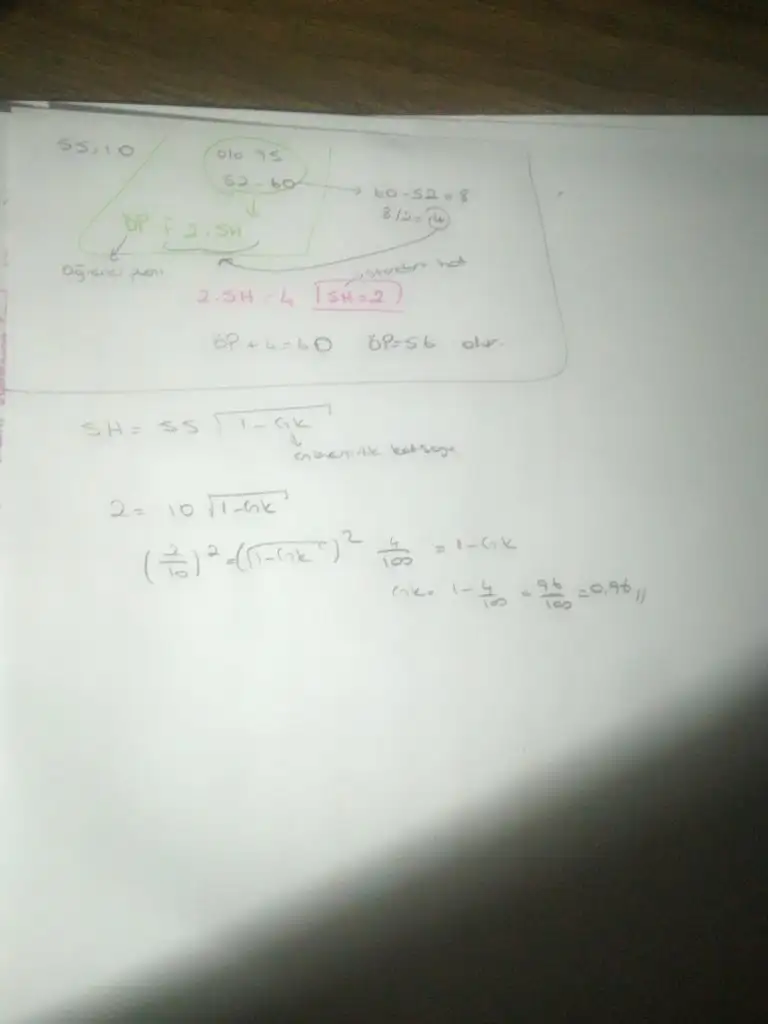 SS=10
%95
52-60
60-52=8
8/2=4
ÖP ∓ 2.SH
Öğrenci puanı
standart hata
2.SH=4 SH=2
ÖP+4=60 ÖP=56 olur.
SH= SS √1-GK
Güvenirlik katsayısı
2= 10 √1-GK
(2/10)²=(√1-GK)² 4/100 = 1-GK
GK= 1-4/100 = 96/100 =0,96//